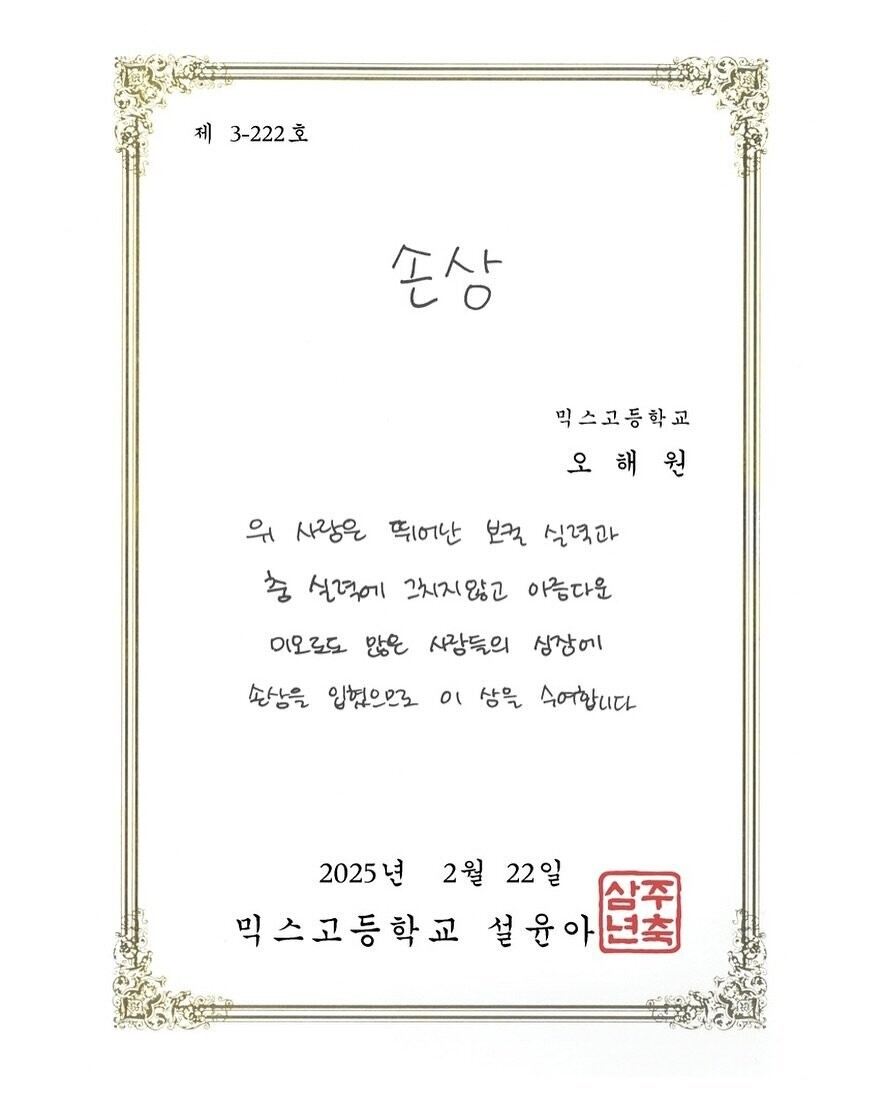 제 3-222호
손상
믹스고등학교
오해원
위 사람은 뛰어난 보컬 실력과
춤 실력에 그치지않고 아름다운
미모로도 많은 사람들의 심장에
손상을 입혔으므로 이 상을 수여합니다
2025년 2월 22일
믹스고등학교 설윤아
삼주
년축